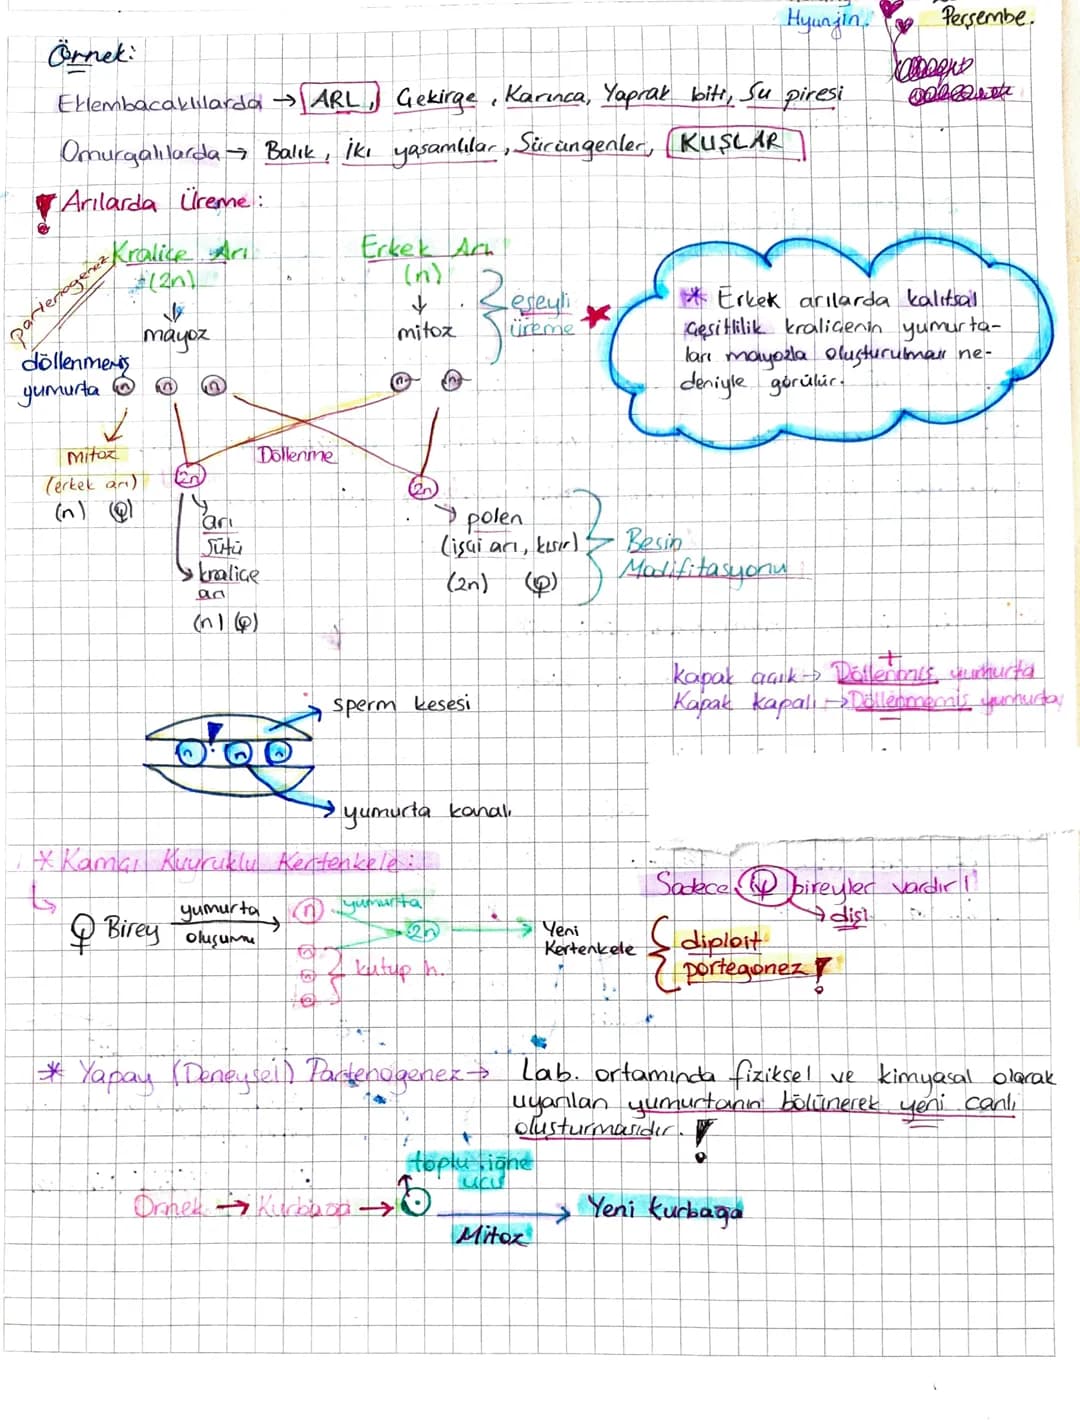 Hyunjin. Perşembe.
Örnek:
Eklembacaklılarda → ARI, Çekirge, Karınca, Yaprak biti, Su piresi
Omurgalılarda → Balık, İki yaşamlılar, Sürüngenler, KUŞLAR
! Arılarda Üreme:
Partenogenez
Kraliçe Arı
(2n)
mayoz
Erkek Arı
(n)
mitoz
eşeyli
üreme
* Erkek arılarda kalıtsal
çeşitlilik kraliçenin yumurta-
ları mayozla oluşturulması ne-
deniyle görülür.
döllenmemiş
yumurta n n n
n n
Mitoz
(erkek arı)
(n)
Döllenme
2n
2n
arı
sütü
kraliçe
arı
(n)
polen
(işçi arı, kısır)
(2n)
Besin
Modifitasyonu
Kapak açık → Döllenmiş yumurta
Kapak kapalı → Döllenmemiş yumurta
+
-
sperm kesesi
n n n
yumurta kanalı
* Kamçı Kuyruklu Kertenkele:
Sadece bireyler vardır!
dişi
♀ Birey yumurta
oluşumu
n yumurta
2n
n
n kutup h.
n
Yeni
Kertenkele
diploit
portegonez !
* Yapay (Deneysel) Partenogenez → Lab. ortamında fiziksel ve kimyasal olarak
uyarılan yumurtanın bölünerek yeni canlı
oluşturmasıdır. !
toplu iğne
ucu
Örnek → Kurbağa → Yeni Kurbağa
Mitoz